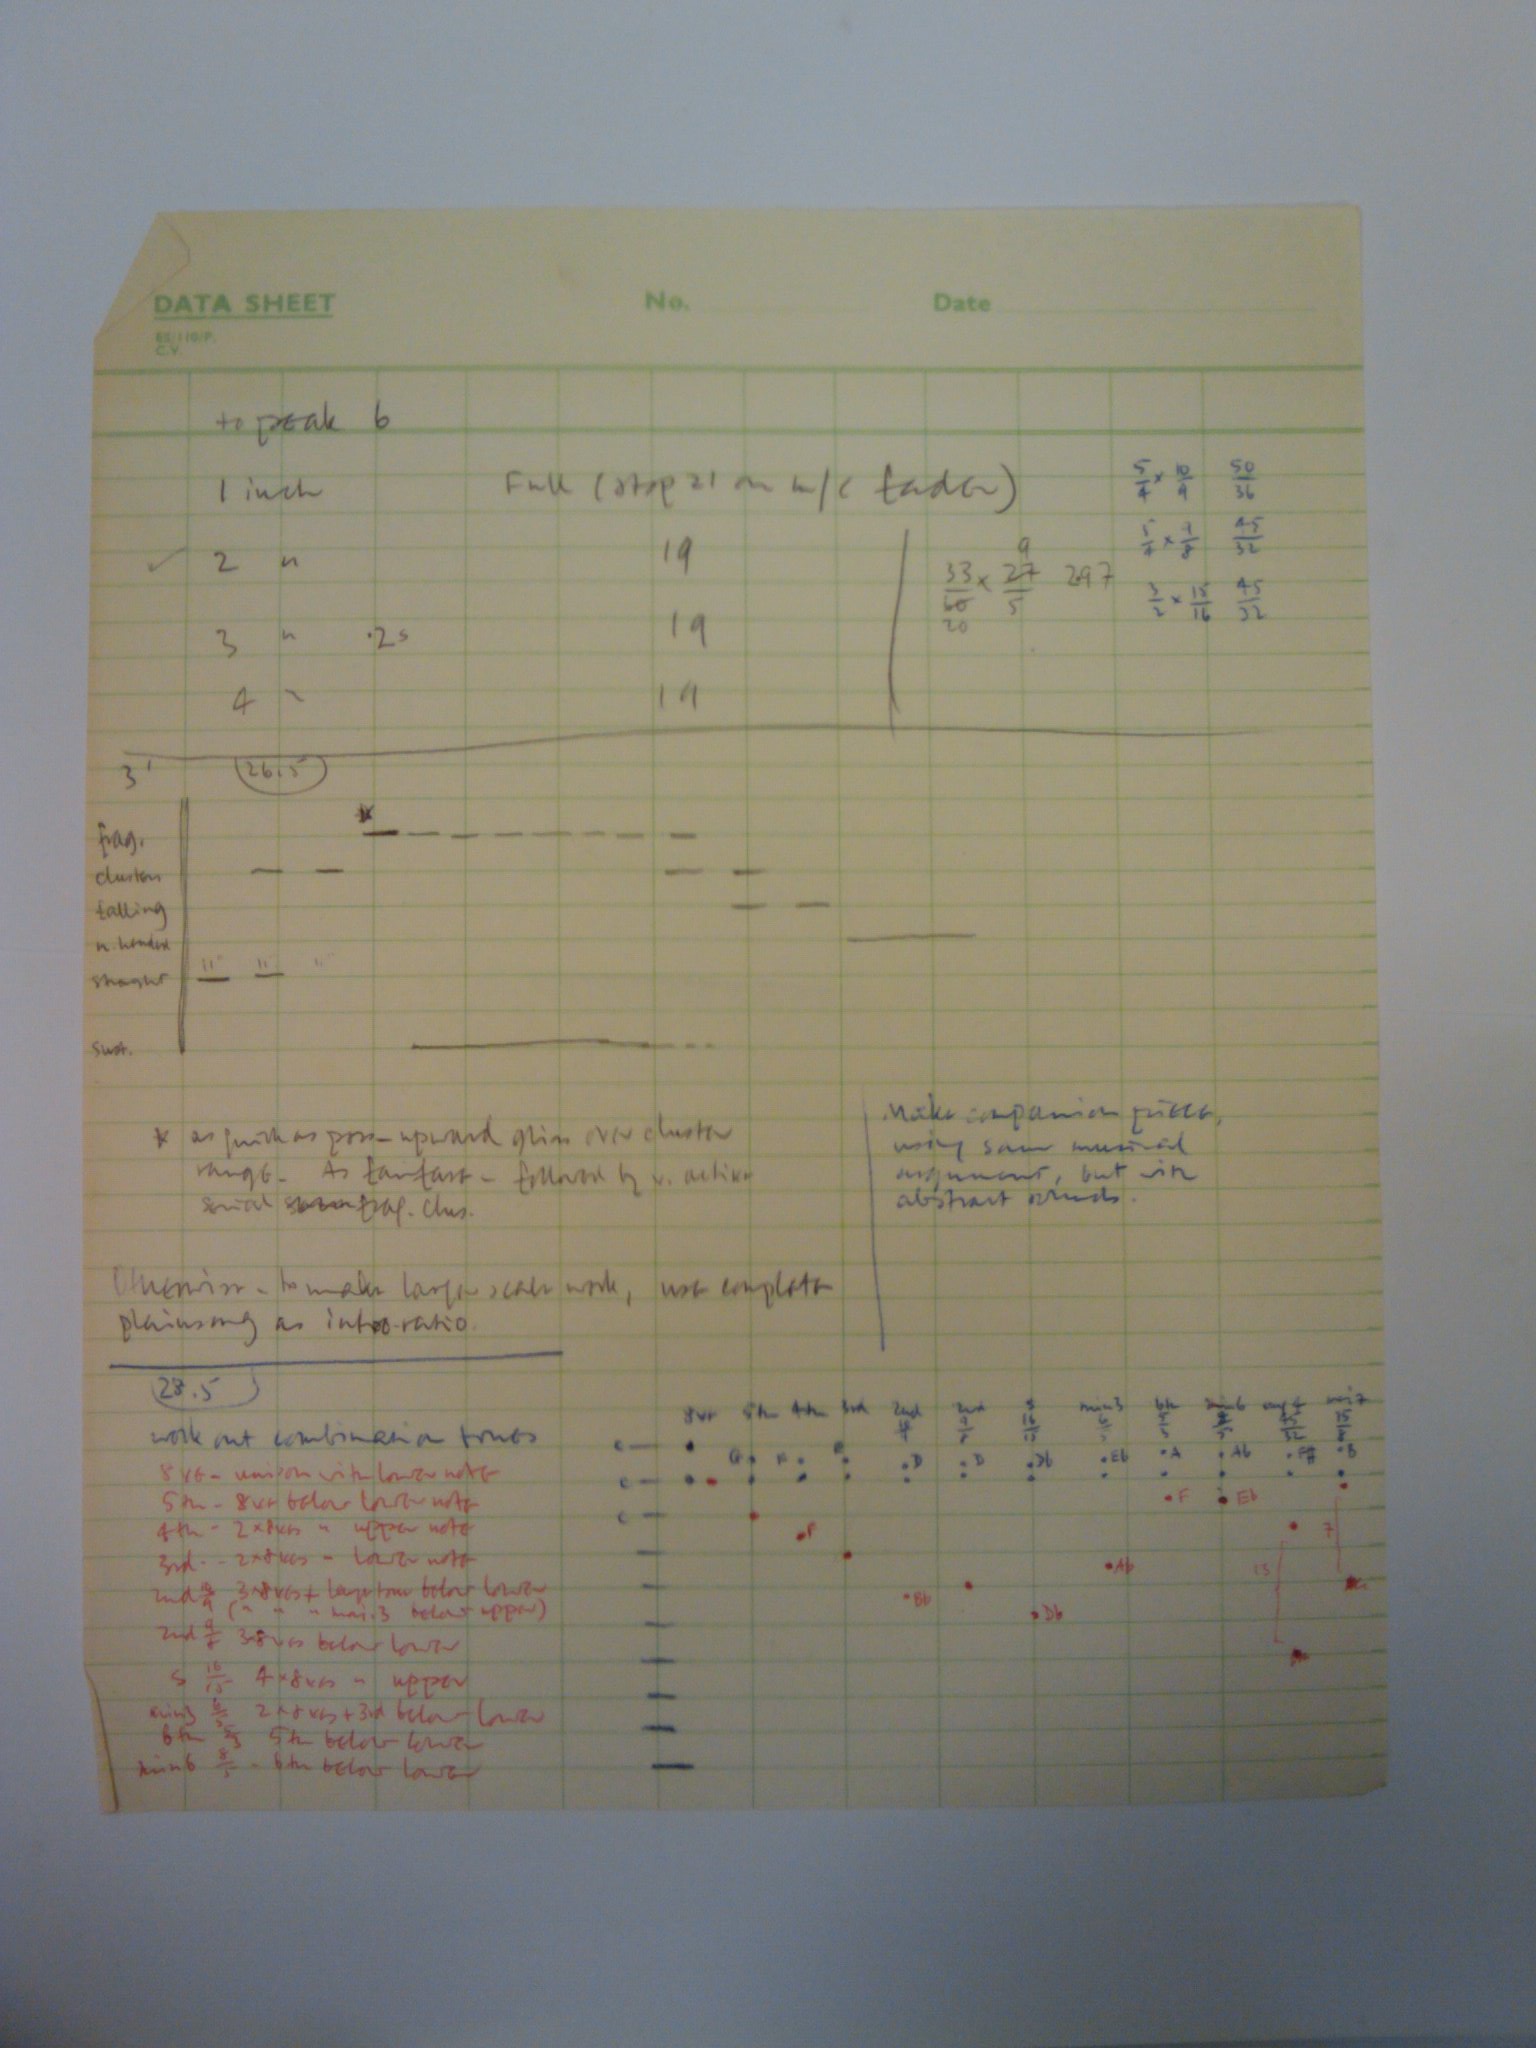 DATA SHEET No. Date
C.V.
to peak 6
1 inch Full (stop 21 on m/c fader)
2 " 19
3 " .25 19
4 " 19
33/60 × 27/5 297
9
20
5/4 × 10/9 50/36
5/4 × 9/8 45/32
3/2 × 15/16 45/32
3' 26.5
frag.
clusters
falling
straight
sust.
* as quick as poss- upward gliss over cluster
range. As fanfare - followed by v. active
frag. clus.
Make companion piece,
using same musical
argument, but with
abstract sounds.
Otherwise - to make larger scale work, use complete
plainsong as ratio.
28.5
work out combination tones
8ve - unison with lower note
5th - 8ve below lower note
4th - 2×8ves " upper note
3rd - 2×8ves " lower note
2nd 10/9 3×8ves + large tone below lower
(" " " maj.3 below upper)
2nd 9/8 3×8ves below lower
s 16/15 4×8ves " upper
min3 6/5 2×8ves + 3rd below lower
6th 5/3 5th below lower
min6 8/5 - 6th below lower
8ve 5th 4th 3rd 2nd 2nd s min3 6th min6 aug4 maj7
10/9 9/8 16/15 6/5 5/3 8/5 45/32 15/8
c
G F E D D Db Eb A Ab F# B
c
F Eb
c
F
7
Ab
13
Bb
Db